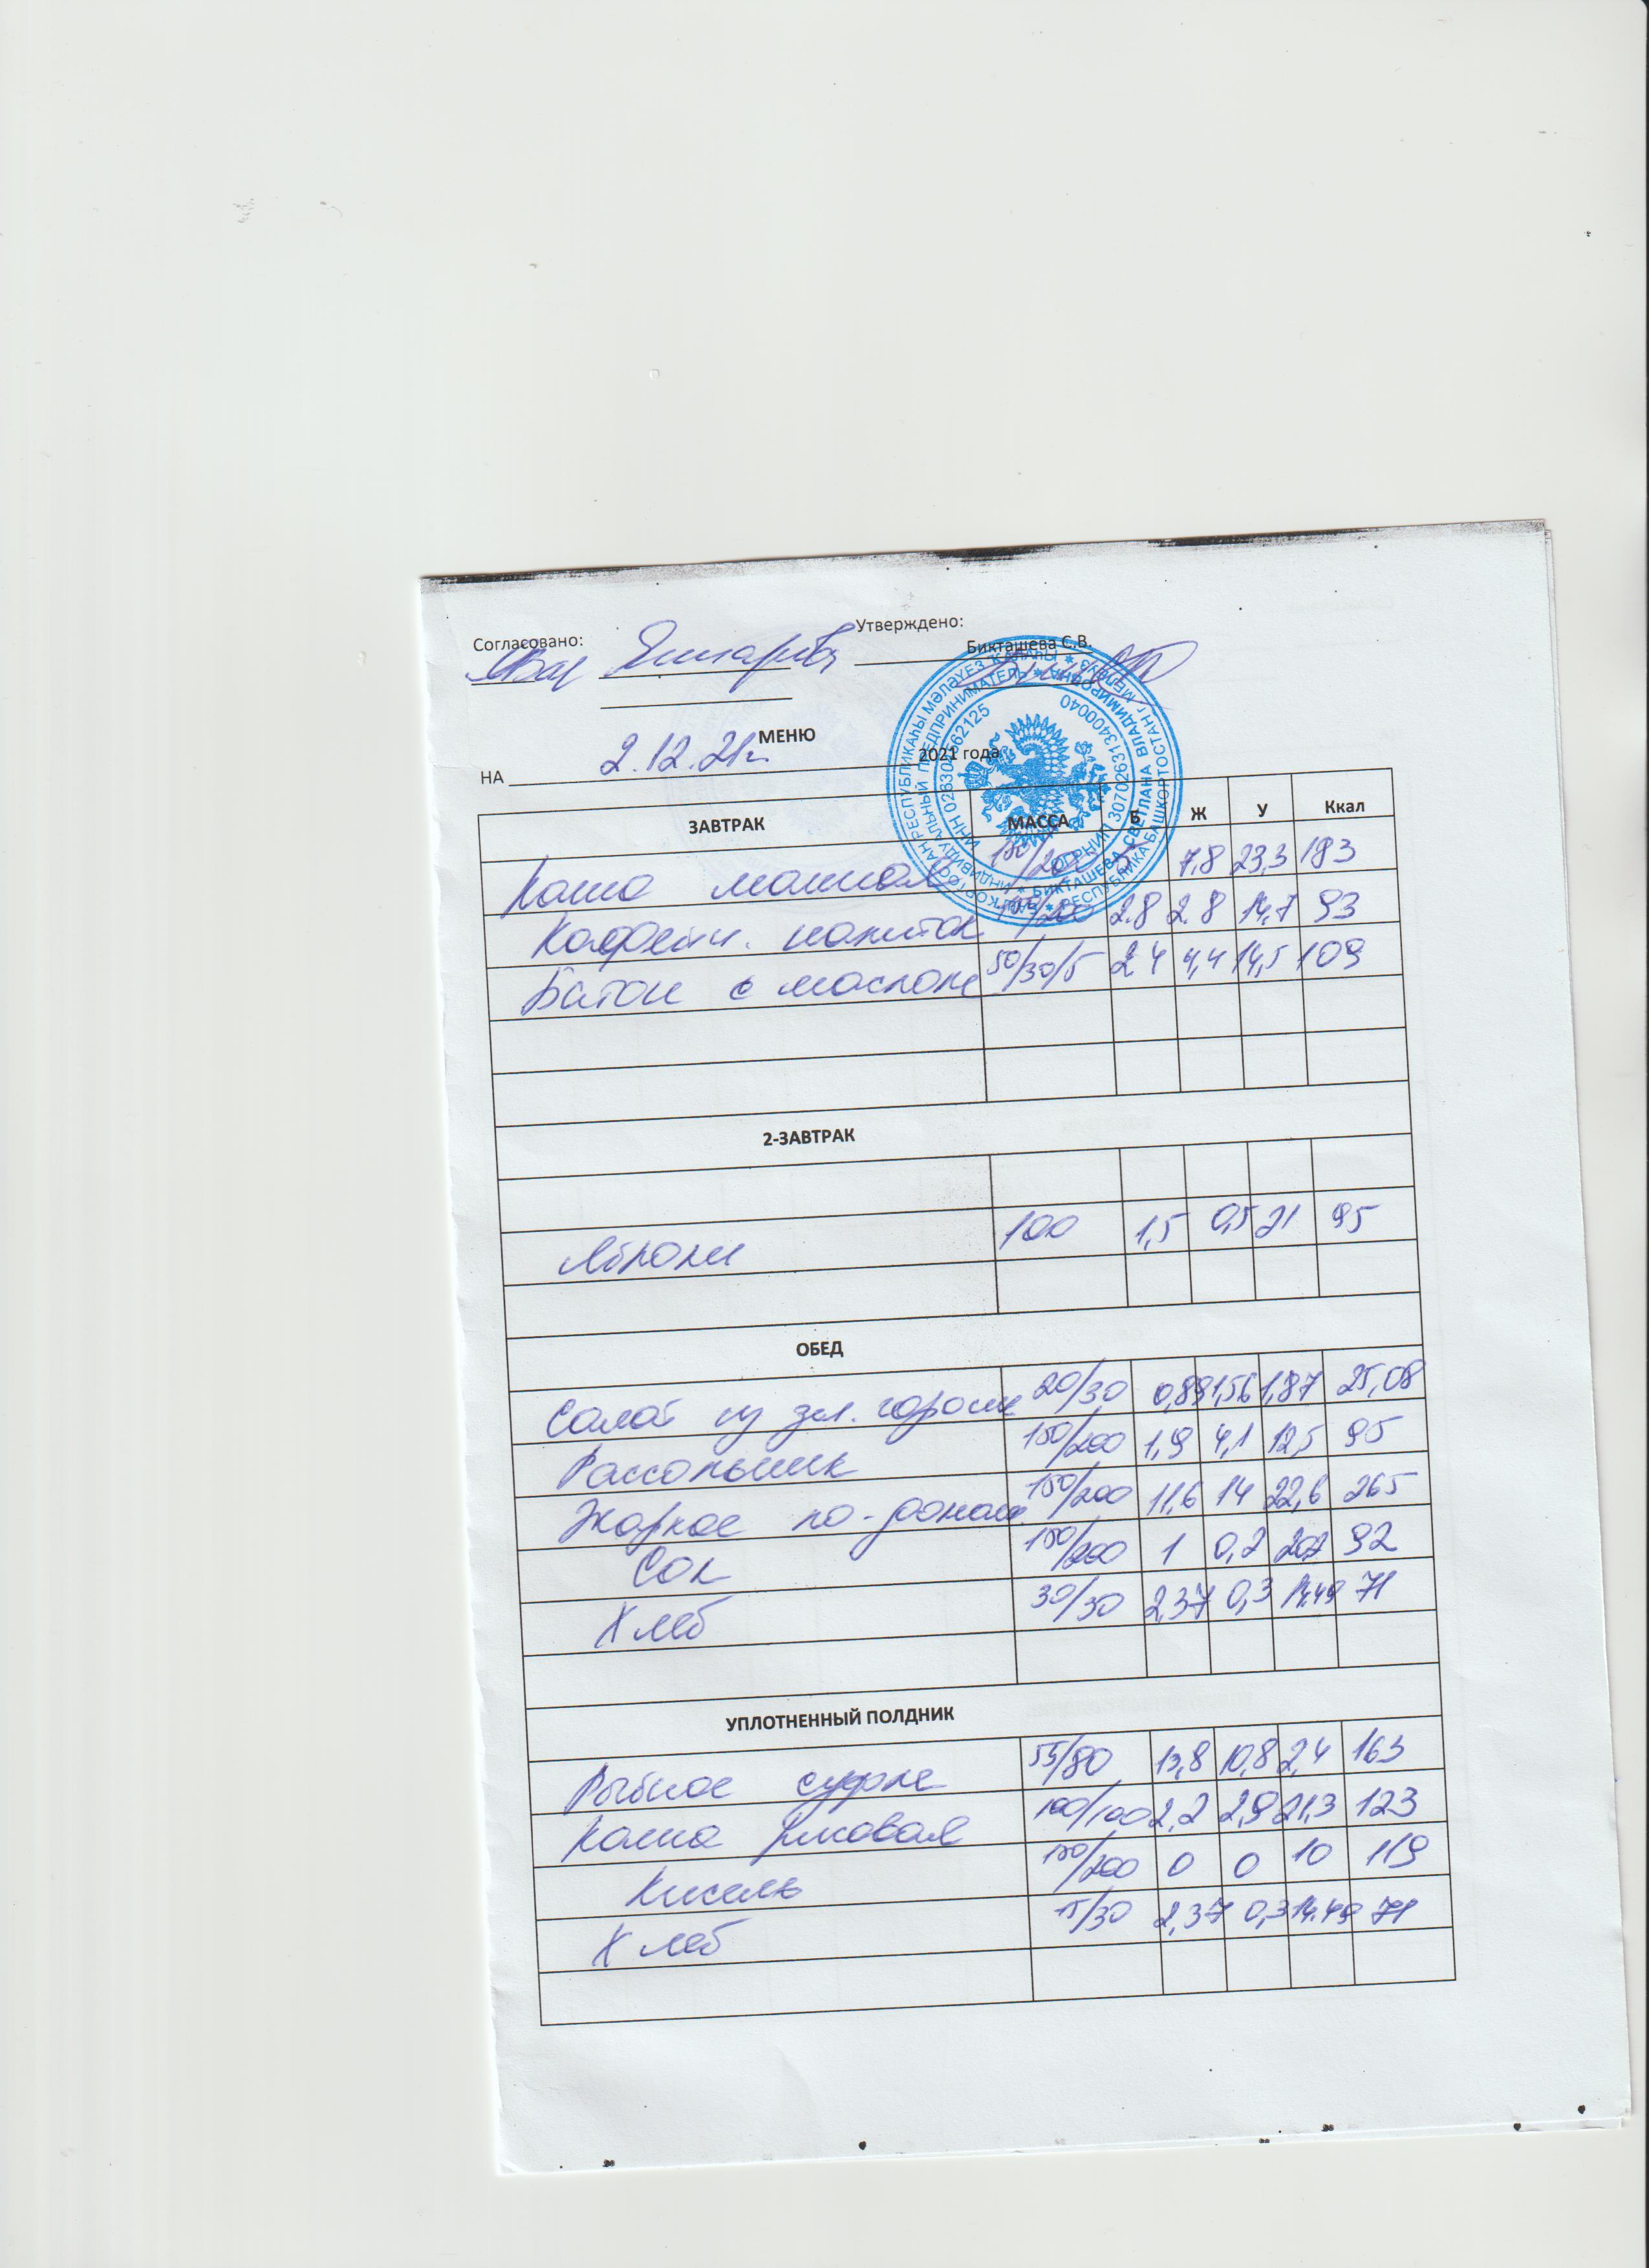 Согласовано:
Утверждено:
Бикташева С.В.
МЕНЮ
НА 2.12.21г. 2021 года
ЗАВТРАК МАССА Б Ж У Ккал
Каша манная 150/200 5 7,8 23,3 183
Кофейн. напиток 150/200 2.8 2.8 14,7 93
Батон с маслом 50/30/5 2 4 4,4 14,5 109
2-ЗАВТРАК
Яблоки 100 1,5 0,5 21 95
ОБЕД
Салат из зел. горош 20/30 0,89 1,56 1,87 25,08
Рассольник 150/200 1,9 4,1 12,5 95
Жаркое по-домаш. 150/200 11,6 14 22,6 265
Сок 150/200 1 0,2 20,2 92
Хлеб 30/30 2,37 0,3 14.49 71
УПЛОТНЕННЫЙ ПОЛДНИК
Рыбное суфле 55/80 13,8 10,8 2,4 163
Каша рисовая 100/100 2,2 2,9 21,3 123
Кисель 150/200 0 0 10 119
Хлеб 15/30 2,37 0,3 14.49 71
РЕСПУБЛИКА БАШКОРТОСТАН г. МЕЛЕУЗ
ИНДИВИДУАЛЬНЫЙ ПРЕДПРИНИМАТЕЛЬ
БИКТАШЕВА СВЕТЛАНА ВЛАДИМИРОВНА